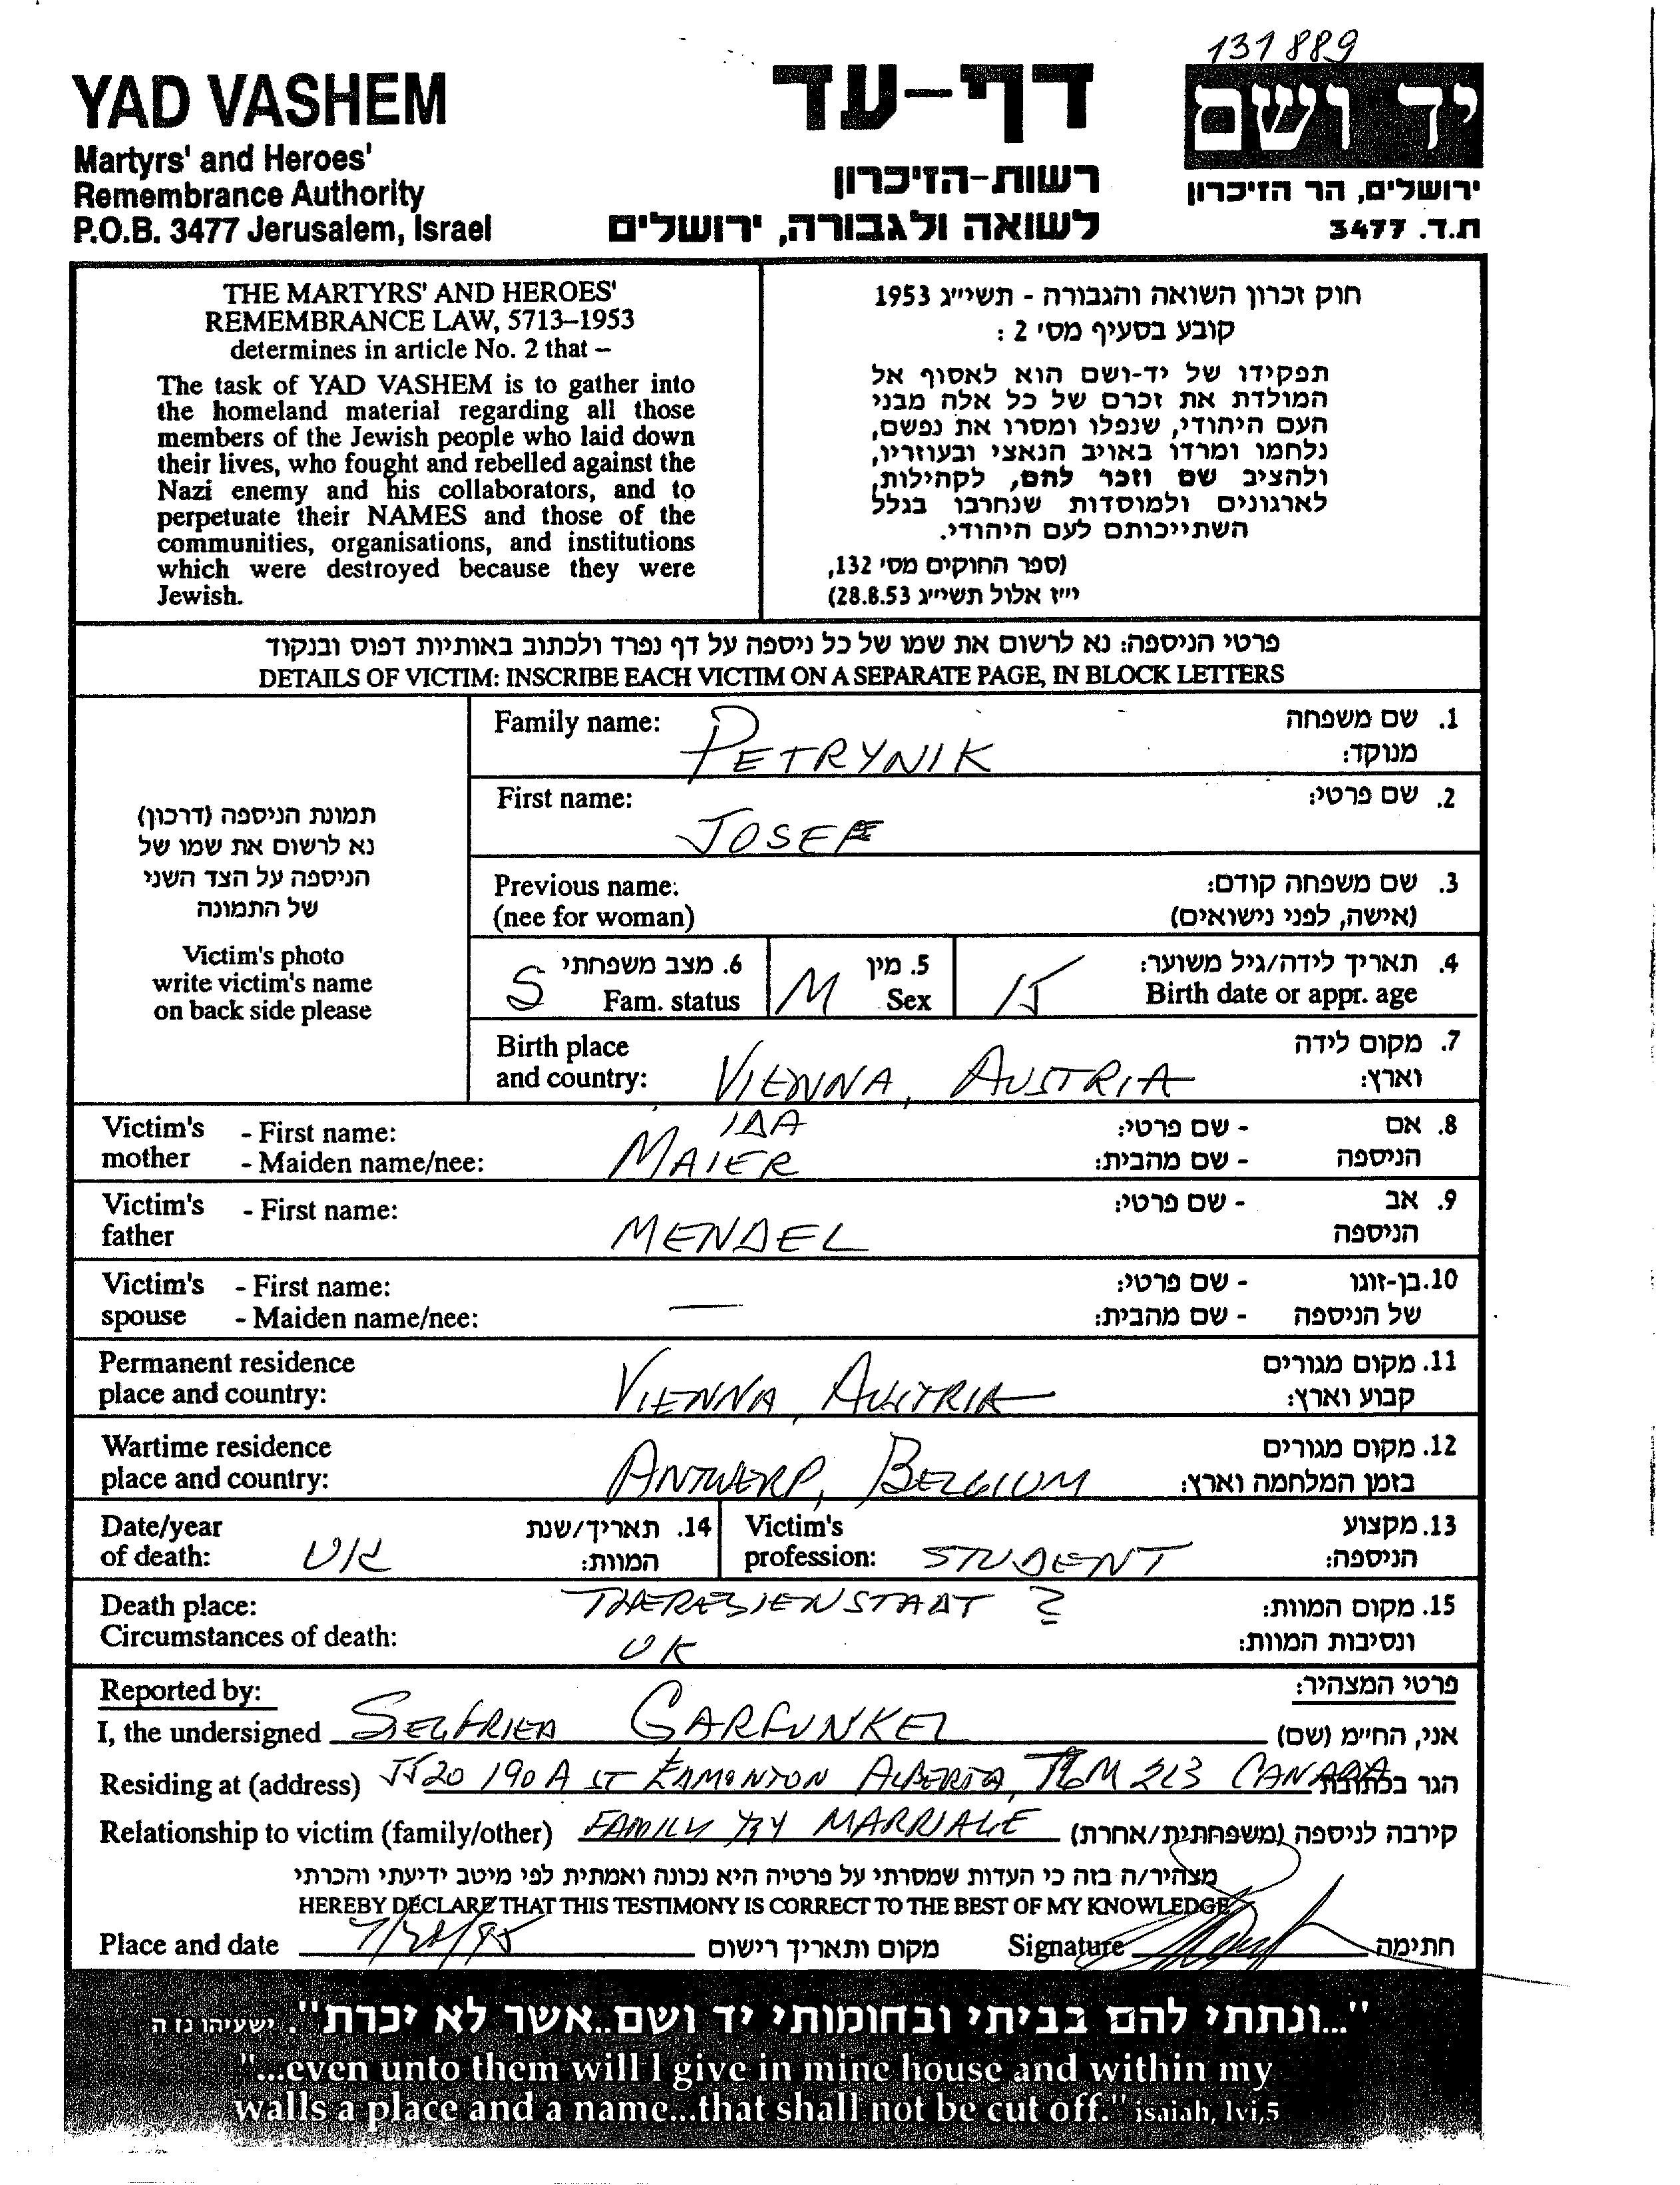 131889
YAD VASHEM
Martyrs' and Heroes'
Remembrance Authority
P.O.B. 3477 Jerusalem, Israel
דף-עד
רשות-הזיכרון
לשואה ולגבורה, ירושלים
יד ושם
ירושלים, הר הזיכרון
ת.ד. 3477
THE MARTYRS' AND HEROES'
REMEMBRANCE LAW, 5713–1953
determines in article No. 2 that –
The task of YAD VASHEM is to gather into
the homeland material regarding all those
members of the Jewish people who laid down
their lives, who fought and rebelled against the
Nazi enemy and his collaborators, and to
perpetuate their NAMES and those of the
communities, organisations, and institutions
which were destroyed because they were
Jewish.
חוק זכרון השואה והגבורה - תשי״ג 1953
קובע בסעיף מס׳ 2 :
תפקידו של יד-ושם הוא לאסוף אל
המולדת את זכרם של כל אלה מבני
העם היהודי, שנפלו ומסרו את נפשם,
נלחמו ומרדו באויב הנאצי ובעוזריו,
ולהציב שם וזכר להם, לקהילות,
לארגונים ולמוסדות שנחרבו בגלל
השתייכותם לעם היהודי.
(ספר החוקים מס׳ 132,
י״ז אלול תשי״ג 28.8.53)
פרטי הניספה: נא לרשום את שמו של כל ניספה על דף נפרד ולכתוב באותיות דפוס ובנקוד
DETAILS OF VICTIM: INSCRIBE EACH VICTIM ON A SEPARATE PAGE, IN BLOCK LETTERS
תמונת הניספה (דרכון)
נא לרשום את שמו של
הניספה על הצד השני
של התמונה
Victim's photo
write victim's name
on back side please
Family name: PETRYNIK 1. שם משפחה
מנוקד:
First name: JOSEF 2. שם פרטי:
Previous name: 3. שם משפחה קודם:
(nee for woman) (אישה, לפני נישואים)
S 6. מצב משפחתי M 5. מין 15 4. תאריך לידה/גיל משוער:
Fam. status Sex Birth date or appr. age
Birth place 7. מקום לידה
and country: VIENNA, AUSTRIA וארץ:
Victim's - First name: IDA - שם פרטי: 8. אם
mother - Maiden name/nee: MAIER - שם מהבית: הניספה
Victim's - First name: - שם פרטי: 9. אב
father MENDEL הניספה
Victim's - First name: - שם פרטי: 10. בן-זוגו
spouse - Maiden name/nee: — - שם מהבית: של הניספה
Permanent residence 11. מקום מגורים
place and country: VIENNA, AUSTRIA קבוע וארץ:
Wartime residence 12. מקום מגורים
place and country: ANTWERP, BELGIUM בזמן המלחמה וארץ:
Date/year 14. תאריך/שנת Victim's 13. מקצוע
of death: U/K המוות: profession: STUDENT הניספה:
Death place: THERESIENSTADT ? 15. מקום המוות:
Circumstances of death: UK ונסיבות המוות:
Reported by: פרטי המצהיר:
I, the undersigned SEGFRIED GARFUNKEL אני, החי״מ (שם)
Residing at (address) 5520 190 A ST EDMONTON ALBERTA, T6M 2L3 CANADA הגר בכתובת
Relationship to victim (family/other) FAMILY BY MARRIAGE קירבה לניספה (משפחתית/אחרת)
מצהיר/ה בזה כי העדות שמסרתי על פרטיה היא נכונה ואמתית לפי מיטב ידיעתי והכרתי
HEREBY DECLARE THAT THIS TESTIMONY IS CORRECT TO THE BEST OF MY KNOWLEDGE
Place and date מקום ותאריך רישום Signature חתימה
"...ונתתי להם בביתי ובחומותי יד ושם..אשר לא יכרת". ישעיהו נו ה
"...even unto them will I give in mine house and within my
walls a place and a name...that shall not be cut off." isaiah, lvi,5